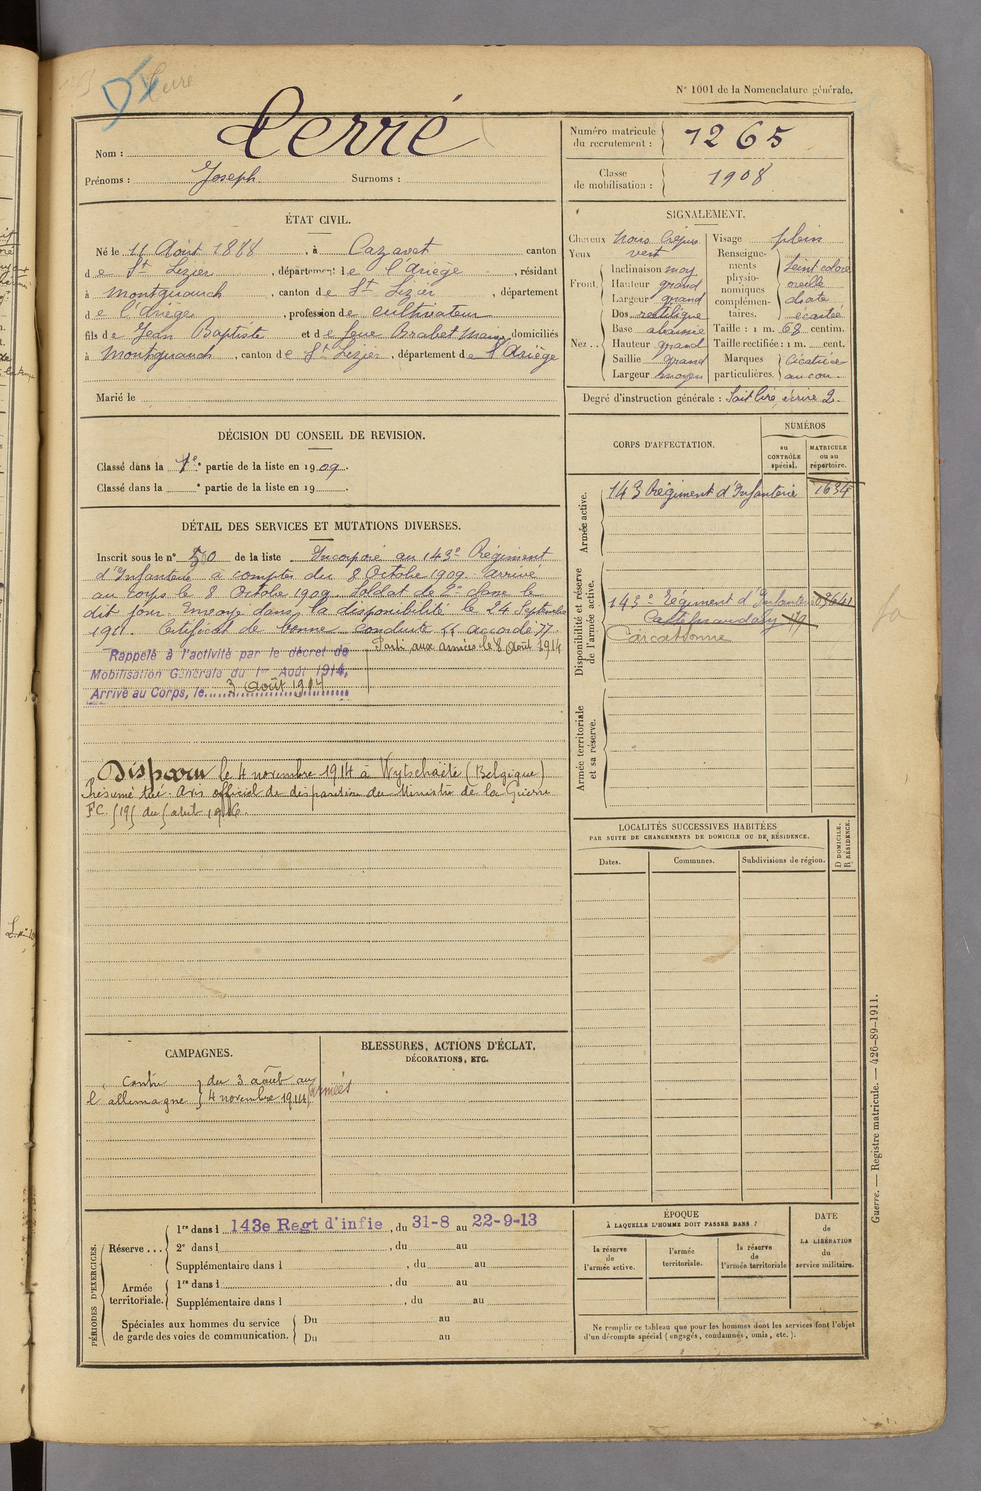 N° 1001 de la Nomenclature générale.
Nom : Cerré
Prénoms : Joseph. Surnoms :
Numéro matricule du recrutement : 1265
Classe de mobilisation : 1908
ÉTAT CIVIL.
Né le 11 Août 1888, à Cazavet canton
de St Lizier, département de l'Ariège, résidant
à Montgauch, canton de St Lizier, département
de l'Ariège, profession de cultivateur
fils de Jean Baptiste et de feue Brabet domiciliés
à Montgauch, canton de St Lizier, département de l'Ariège
Marié le
SIGNALEMENT.
Cheveux noirs crépus
Yeux vert
Front Inclinaison moy
Hauteur grand
Largeur grand
Nez Dos rectiligne
Base abaissée
Hauteur grand
Saillie grand
Largeur moyen
Visage plein
Renseignements physionomiques complémentaires. teint coloré oreille droite écartée
Taille : 1 m. 68 centim.
Taille rectifiée : 1 m. cent.
Marques particulières. Cicatrice au cou.
Degré d'instruction générale : Sait lire, écrire 2.
DÉCISION DU CONSEIL DE REVISION.
Classé dans la 1e partie de la liste en 1909.
Classé dans la partie de la liste en 19
DÉTAIL DES SERVICES ET MUTATIONS DIVERSES.
Inscrit sous le n° de la liste Incorporé au 143e Régiment
d'Infanterie à compter du 8 Octobre 1909. Arrivé
au corps le 8 Octobre 1909. Soldat de 2e classe le
dit jour. Envoyé dans la disponibilité le 24 Septembre
1911. Certificat de bonne conduite "accordé".
Rappelé à l'activité par le décret de
Mobilisation Générale du 1er Août 1914,
Arrivé au Corps, le 3 août 1914
Parti aux armées le 8 Août 1914
Disparu le 4 novembre 1914 à Wytschaëte (Belgique)
Présumé tué. Avis officiel de disparition du Ministre de la Guerre
CORPS D'AFFECTATION.
NUMÉROS
au CONTRÔLE spécial.
MATRICULE ou au répertoire.
Armée active.
143 Régiment d'Infanterie 1634
Disponibilité et réserve de l'armée active.
143e Régiment d'Infanterie
Castelnaudary
Carcassonne
Armée territoriale et sa réserve.
LOCALITÉS SUCCESSIVES HABITÉES
PAR SUITE DE CHANGEMENTS DE DOMICILE OU DE RÉSIDENCE.
Dates. Communes. Subdivisions de région.
D DOMICILE. R RÉSIDENCE.
CAMPAGNES.
Contre l'allemagne } du 3 août au 4 novembre 1914 armées
BLESSURES, ACTIONS D'ÉCLAT,
DÉCORATIONS, ETC.
PÉRIODES D'EXERCICES.
Réserve ...
1re dans l 143e Regt d'infie, du 31-8 au 22-9-13
2e dans l , du au
Supplémentaire dans l , du au
Armée territoriale.
1re dans l , du au
Supplémentaire dans l , du au
Spéciales aux hommes du service de garde des voies de communication.
Du au
Du au
ÉPOQUE
À LAQUELLE L'HOMME DOIT PASSER DANS :
la réserve de l'armée active.
l'armée territoriale.
la réserve de l'armée territoriale
DATE de LA LIBÉRATION du service militaire.
Ne remplir ce tableau que pour les hommes dont les services font l'objet
d'un décompte spécial (engagés, condamnés, omis, etc.).
Guerre. — Registre matricule. — 426-89-1911.